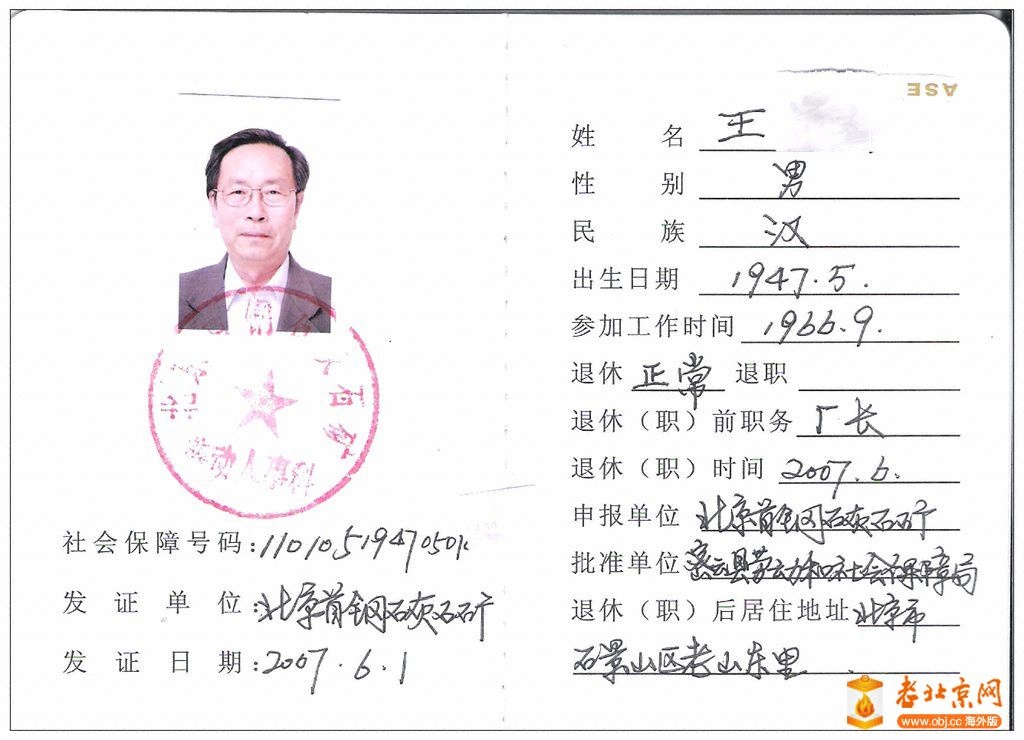 ASE
姓名 王
性别 男
民族 汉
出生日期 1947.5.
参加工作时间 1966.9.
退休 正常 退职
退休（职）前职务 厂长
退休（职）时间 2007.6.
申报单位 北京首钢石灰石矿
批准单位 密云县劳动和社会保障局
退休（职）后居住地址 北京市
石景山区老山东里
社会保障号码:
发证单位:北京首钢石灰石矿
发证日期:2007.6.1
老北京网
www.obj.cc 海外版